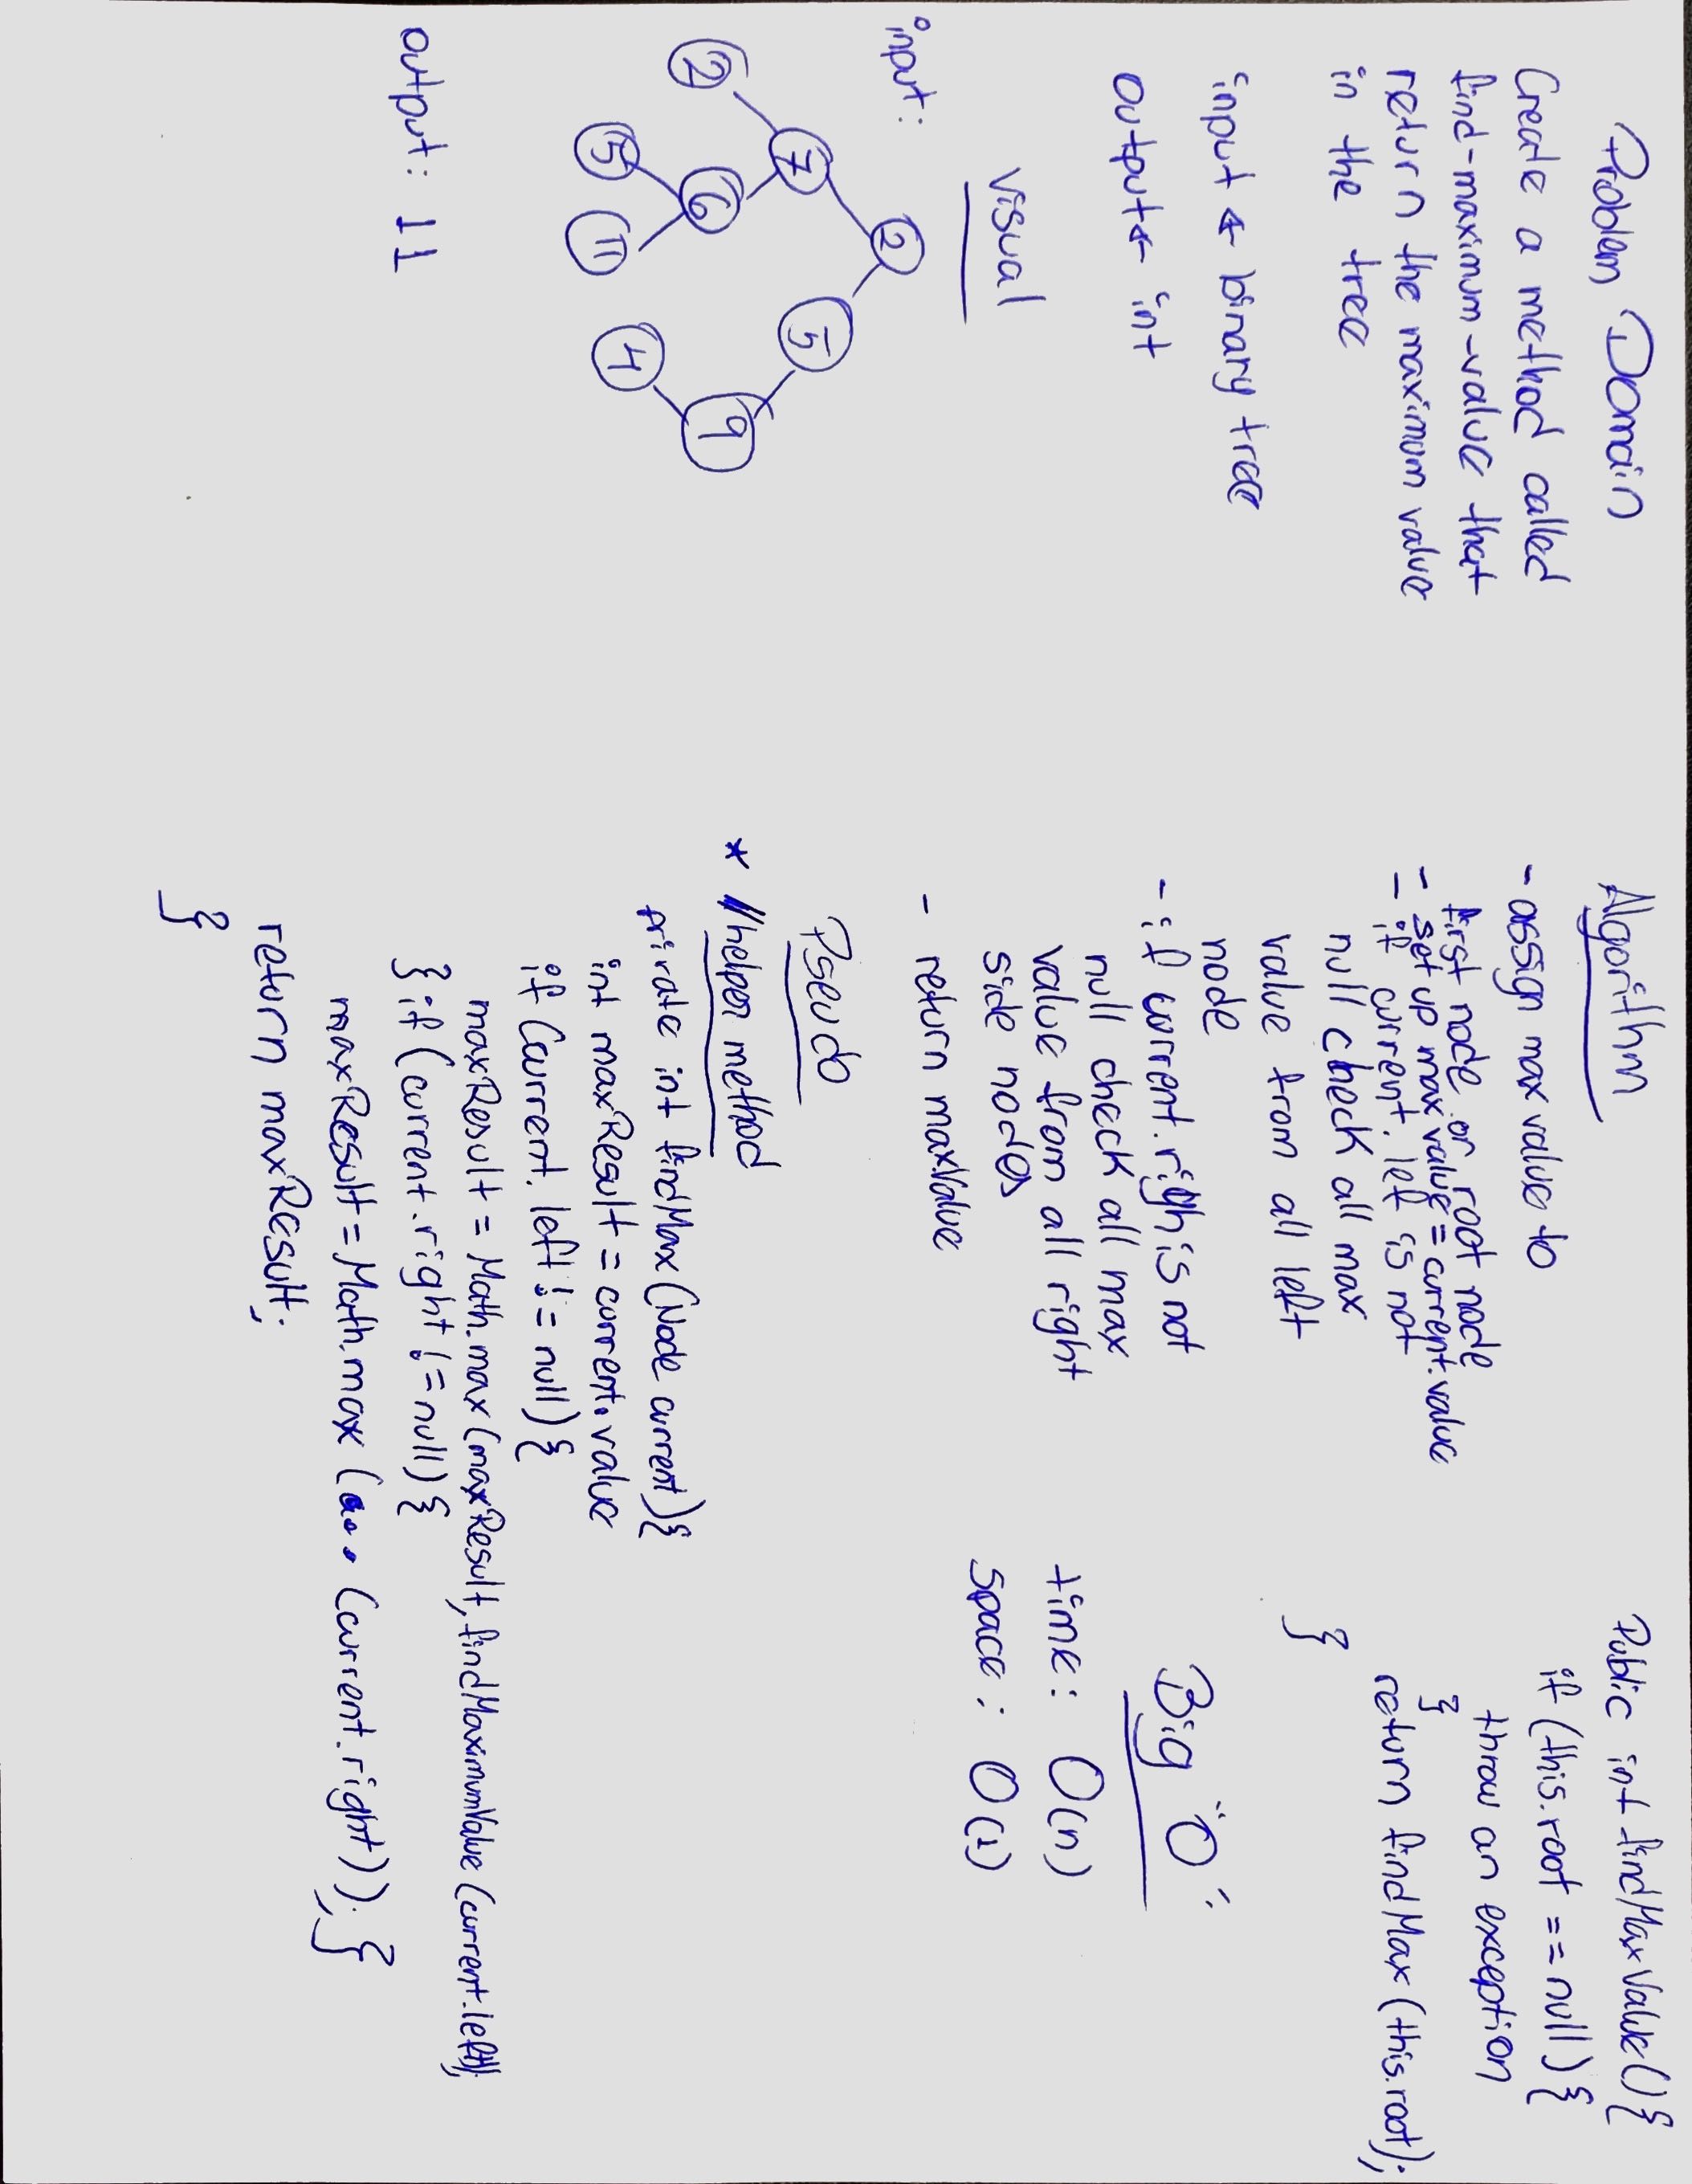 Problem Domain
Create a method called
find-maximum-value that
return the maximum value
in the tree
input ← binary tree
output ← int
visual
input:
2
7
5
2
6
9
5
11
4
output: 11
Algorithm
- assign max value to
first node or root node
- set up max value = current.value
- if current.left is not
null check all max
value from all left
node
- if current.righ is not
null check all max
value from all right
side nodes
- return maxValue
Pseudo
* // helper method
private int findMax (Node current){
int maxResult = current.value
if (current.left != null){
maxResult = Math.max (maxResult, findMaximumValue (current.left));
} if (current.right != null){
maxResult = Math.max (... (current.right)); }
return maxResult;
}
Public int findMaxValue(){
if (this.root == null){
throw an exception
}
return findMax (this.root);
}
Big "O"
time: O(n)
space: O(1)